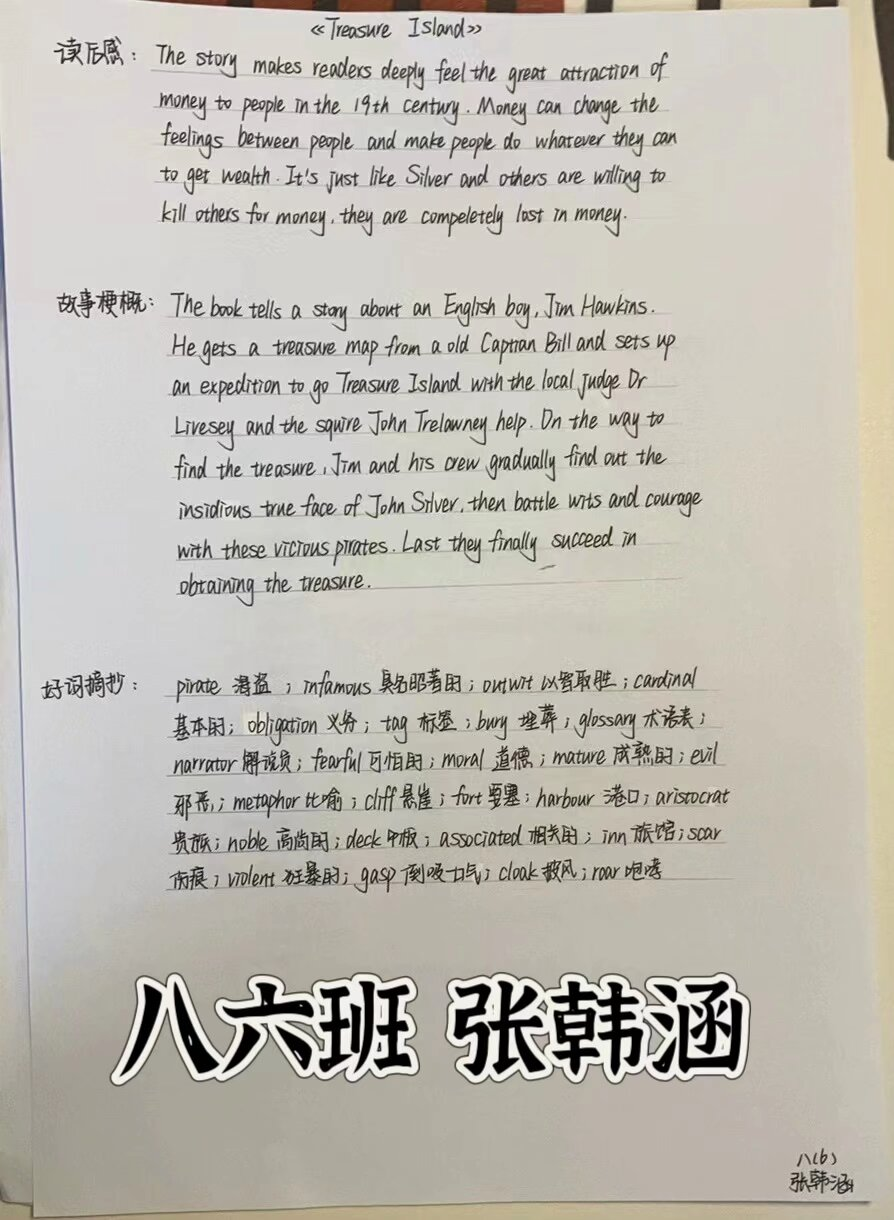 《Treasure Island》
读后感: The story makes readers deeply feel the great attraction of
money to people in the 19th century. Money can change the
feelings between people and make people do whatever they can
to get wealth. It's just like Silver and others are willing to
kill others for money, they are compeletely lost in money.
故事梗概: The book tells a story about an English boy, Jim Hawkins.
He gets a treasure map from a old Captian Bill and sets up
an expedition to go Treasure Island with the local judge Dr
Livesey and the squire John Trelawney help. On the way to
find the treasure, Jim and his crew gradually find out the
insidious true face of John Silver, then battle wits and courage
with these vicious pirates. Last they finally succeed in
obtaining the treasure.
好词摘抄: pirate 海盗; infamous 臭名昭著的; outwit 以智取胜; cardinal
基本的; obligation 义务; tag 标签; bury 埋葬; glossary 术语表;
narrator 解说员; fearful 可怕的; moral 道德; mature 成熟的; evil
邪恶; metaphor 比喻; cliff 悬崖; fort 要塞; harbour 港口; aristocrat
贵族; noble 高尚的; deck 甲板; associated 相关的; inn 旅馆; scar
伤痕; violent 狂暴的; gasp 倒吸口气; cloak 披风; roar 咆哮
八六班 张韩涵
八(6)
张韩涵